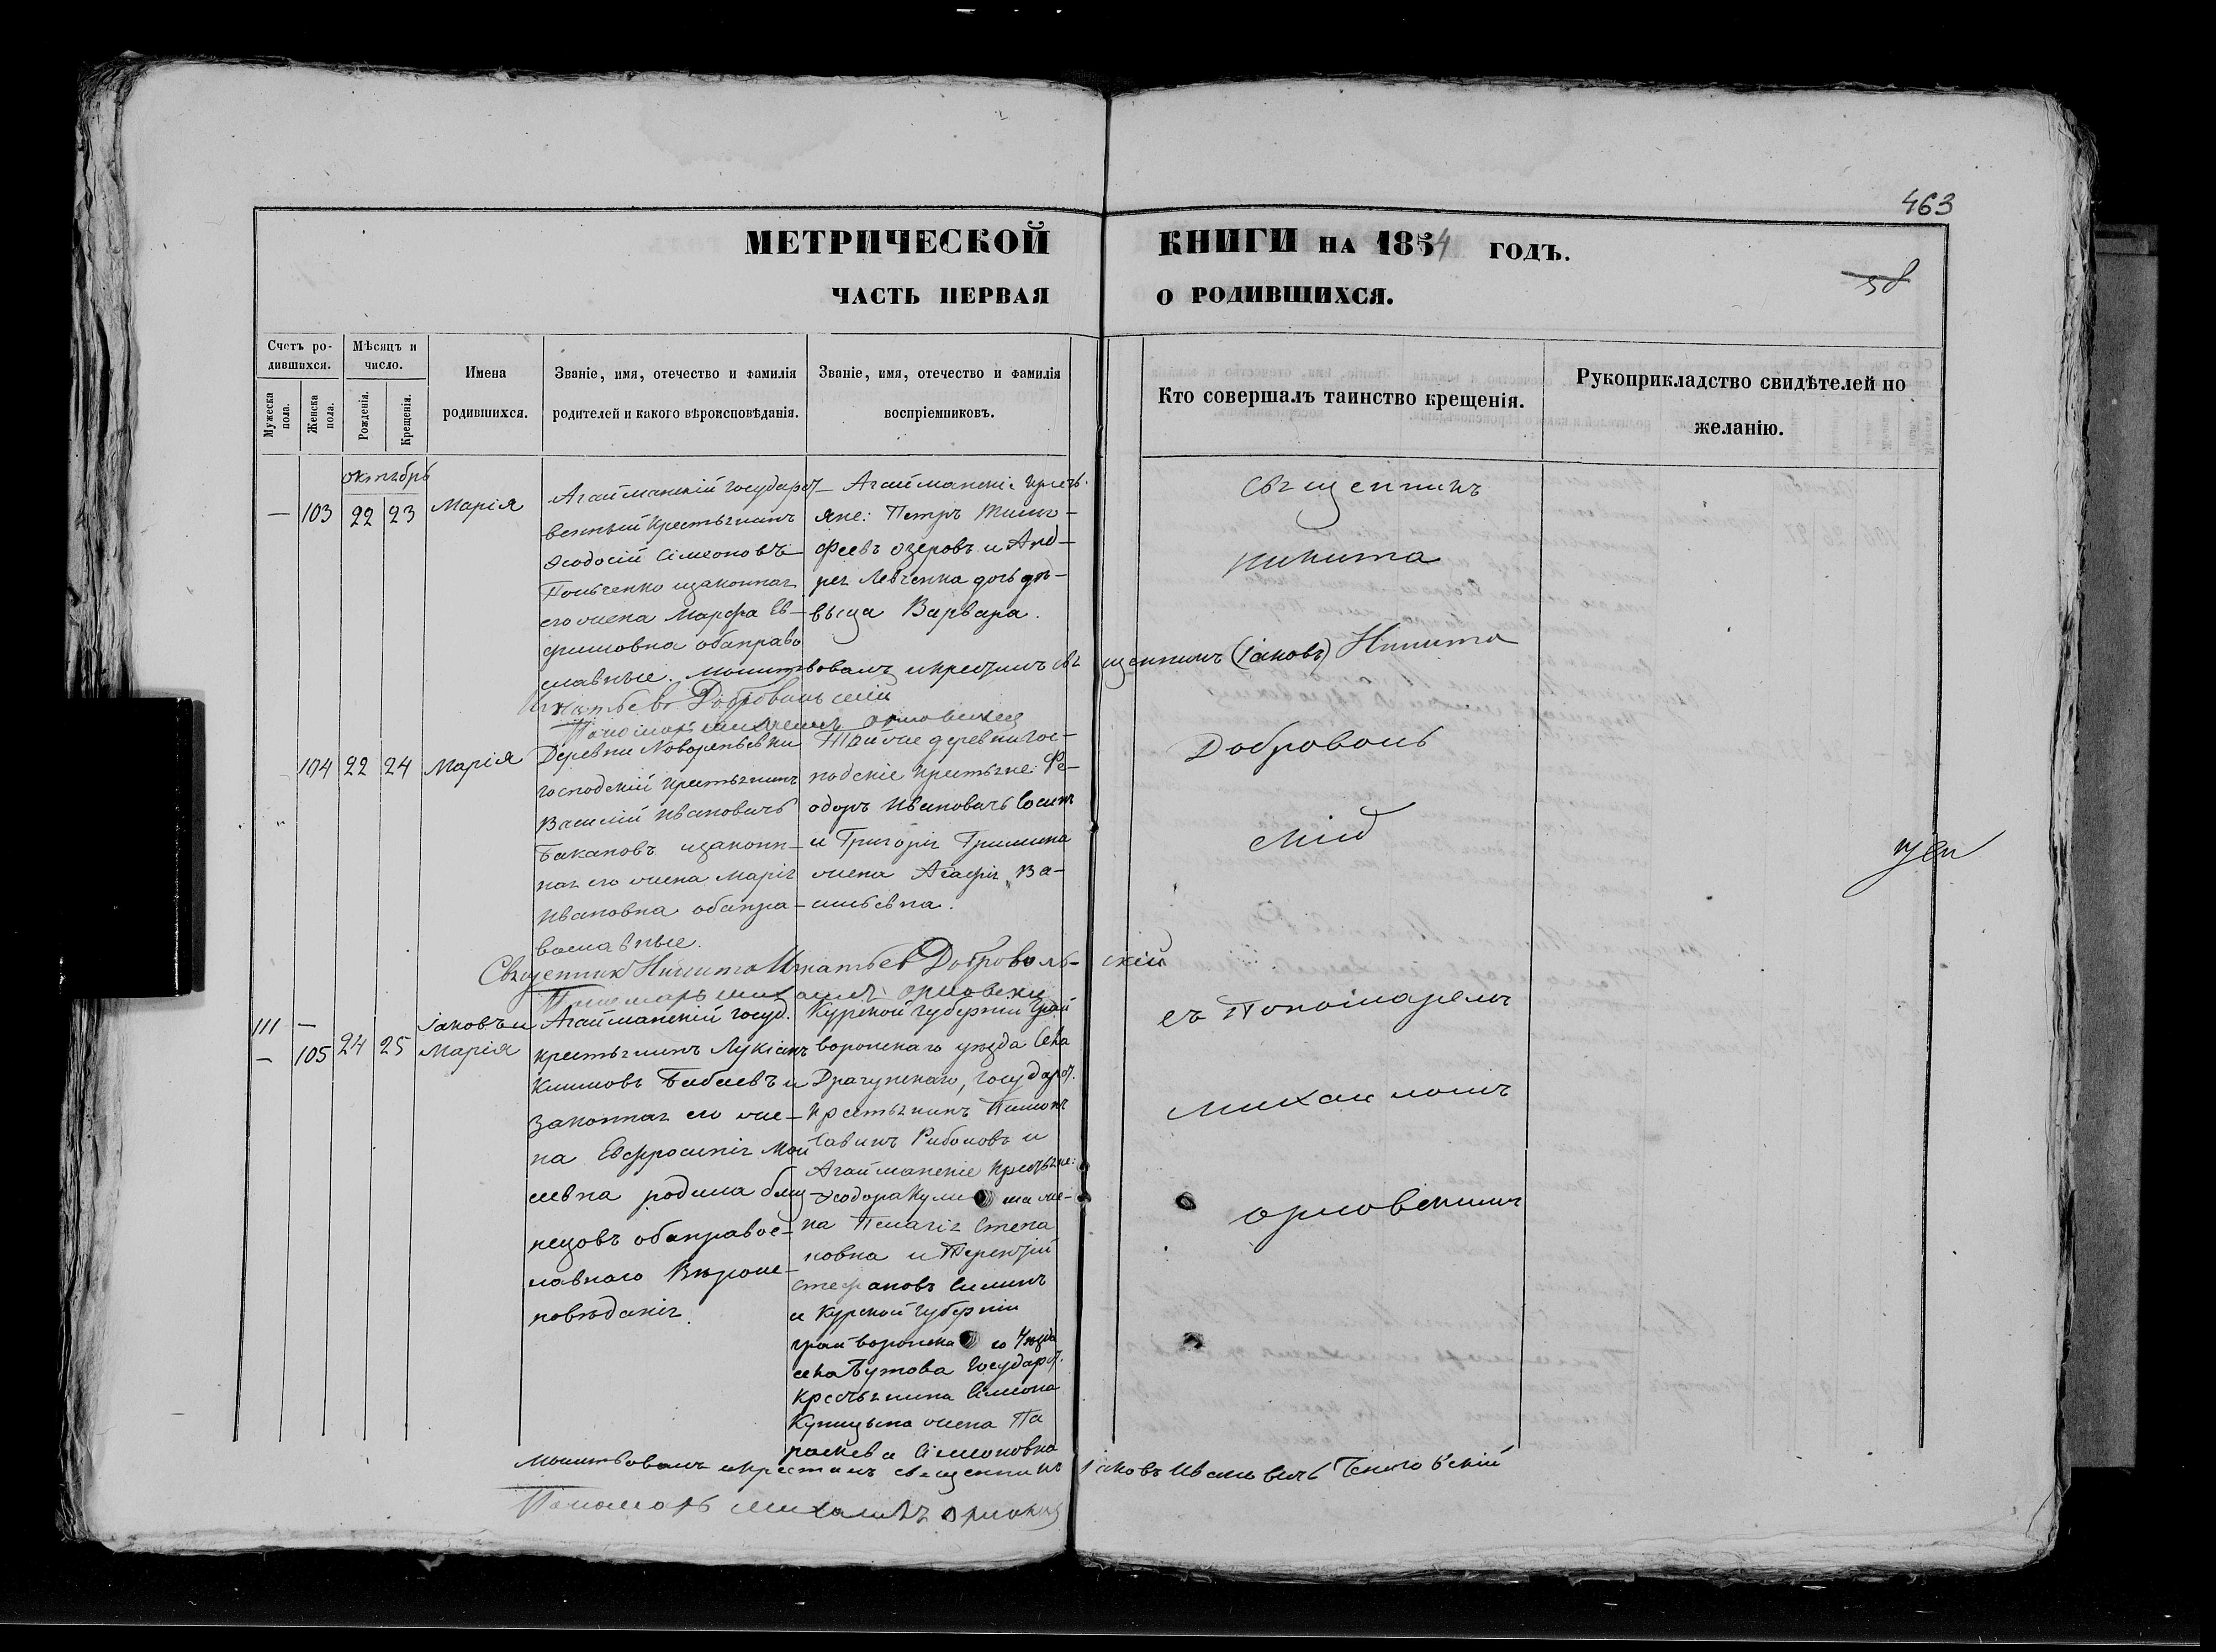 463
МЕТРИЧЕСКОЙ КНИГИ НА 1854 ГОДЪ.
58
ЧАСТЬ ПЕРВАЯ О РОДИВШИХСЯ.
Счетъ родившихся.
Мужеска пола.
Женска пола.
Мѣсяцъ и число.
Рожденія.
Крещенія.
Имена родившихся.
Званіе, имя, отечество и фамилія родителей и какого вѣроисповѣданія.
Званіе, имя, отечество и фамилія воспріемниковъ.
Кто совершалъ таинство крещенія.
Рукоприкладство свидѣтелей по желанію.
октябрь
— 103 22 23 Марія
Агайманскій государст-
венный крестьянинъ
Ѳеодосій Сімеоновъ
его жена Марфа Ев-
фимовна обаправо
славные.
Агайманскіе крестья-
яне: Петръ Тимо-
феевъ Озеровъ и Анд-
рея Левченка дочь дѣ-
выца Варвара.
Молитвовалъ и крестилъ священникъ (Іаковъ) Никита
Игнатьевъ Добровольскій
Пономарь Михаилъ Орловский
104 22 24 Марія
Деревни
господскій крестьянинъ
Василій Ивановичъ
Бакановъ изаконн-
ная его жена Марія
Ивановна обапра-
вославные.
Тойже деревни гос-
подскіе крестьяне: Фе-
одоръ Ивановичъ
и Григорія Гришина
жена Агафія Ва-
сильевна.
Священник Никита Игнатьев Добровольскій
Пономарь Михаилъ Орловский
111 —
— 105 24 25 Іаковъ и
Марія
Агайманскій госуд.
крестьянинъ Лукіанъ
Климовъ Бабаевъ и
законная его же-
на Евфросинія Мои
сеевна родила близ-
нецовъ обаправос-
лавнаго Вѣроис-
повѣданія.
Курской губерніи Грай
воронскаго уѣзда Села
Драгунскаго, государст.
крестьянинъ Пимонъ
Савинъ и
Агайманскіе крестьяне:
Ѳеодора же-
на Пелагія Степа
новна и Терентій
Стефановъ
и Курской губерніи
грайворонскаго Уѣзда
села Бутова Государст.
Крестьянина Симеона
Куницына жена Па
раскева Сімеоновна
Молитвовалъ и крестилъ священникъ Іаковъ Ивановичъ
Пономарь Михаилъ Орловский
Священникъ
Никита
Доброволь
скій
съ Пономаремъ
Михаиломъ
Орловскимъ